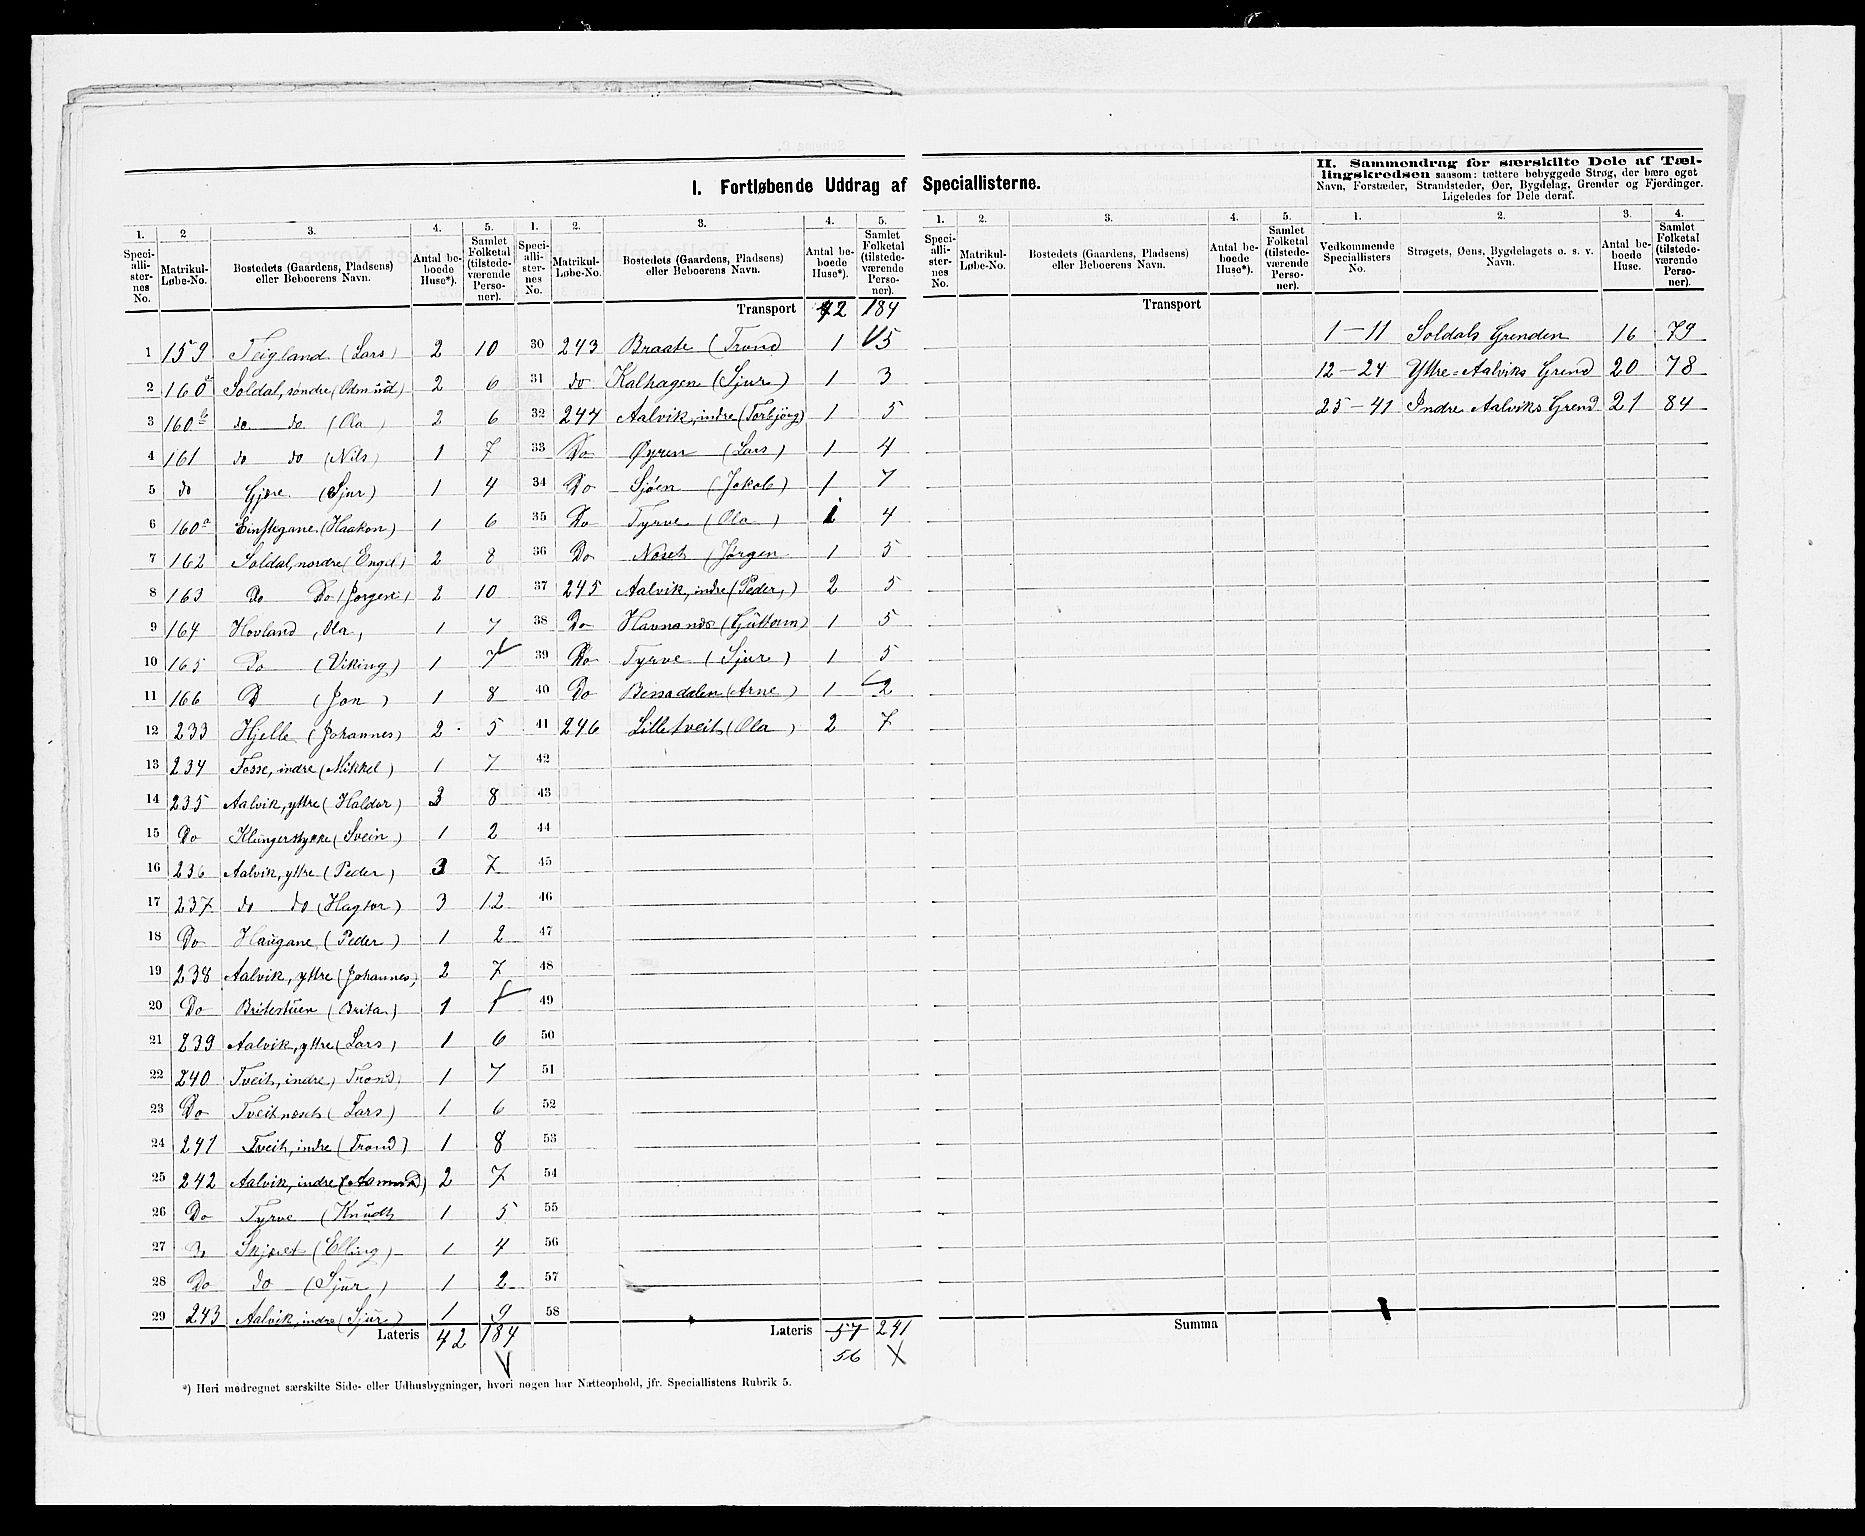 I. Fortløbende Uddrag af Speciallisterne.
II. Sammendrag for særskilte Dele af Tæl-
lingskredsen saasom: tættere bebyggede Strøg, der bære eget
Navn, Forstæder, Strandsteder, Øer, Bygdelag, Grender og Fjerdinger.
Ligeledes for Dele deraf.
1. 2 3. 4. 5. 1. 2. 3. 4. 5. 1. 2. 3. 4. 5. 1. 2. 3. 4.
Speci-alli-ster-nes No. Matrikul-Løbe-No. Bostedets (Gaardens, Pladsens) eller Beboerens Navn. Antal be-boede Huse*). Samlet Folketal (tilstede-værende Perso-ner).
Speci-alli-ster-nes No. Matrikul-Løbe-No. Bostedets (Gaardens, Pladsens) eller Beboerens Navn. Antal be-boede Huse*). Samlet Folketal (tilstede-værende Perso-ner).
Speci-alli-ster-nes No. Matrikul-Løbe-No. Bostedets (Gaardens, Pladsens) eller Beboerens Navn. Antal be-boede Huse*). Samlet Folketal (tilstede-værende Perso-ner).
Vedkommende Speciallisters No. Strøgets, Øens, Bygdelagets o. s. v. Navn. Antal be-boede Huse. Samlet Folketal (tilstede-værende Perso-ner).
1 159 Teigland (Lars) 2 10
2 160a Soldal, søndre (Odmund) 2 6
3 160b do do (Ola) 2 6
4 161 do do (Nils) 1 7
5 do Gjære (Sjur) 1 4
6 160a (Haakon) 1 6
7 162 Soldal, nordre (Engel) 2 8
8 163 Do Do (Jørgen) 2 10
9 164 Hovland (Ola) 1 7
10 165 Do (Viking) 1 7
11 166 D (Jon) 1 8
12 233 Hjelle (Johannes) 2 5
13 234 Fosse, indre (Nikkel) 1 7
14 235 Aalvik, yttre (Haldor) 3 8
15 Do Klungerstykke (Svein) 1 2
16 236 Aalvik, yttre (Peder) 3 7
17 237 do do (Hagtor) 3 12
18 Do Haugane (Peder) 1 2
19 238 Aalvik, yttre (Johannes) 2 7
20 Do Britestuen (Brita) 1 1
21 239 Aalvik, yttre (Lars) 1 6
22 240 Tveit, indre, Trond) 1 7
23 Do Tveitnæset (Lars) 1 6
24 241 Tveit, indre (Trond) 1 8
25 242 Aalvik, indre (Aamund) 2 7
26 Do Tyrve (Knudt 1 5
27 Do Skjæret (Elling) 1 4
28 Do do (Sjur) 1 2
29 243 Aalvik, indre (Sjur) 1 9
Lateris 42 184
Transport 42 184
30 243 Braate (Trond 1 5
31 do Kalhagen (Sjur) 1 3
32 244 Aalvik, indre (Torbjørg) 1 5
33 Do Øyren (Lars) 1 4
34 Do Sjøen (Jakob) 1 7
35 Do Tyrve (Ola) 1 4
36 Do Næset (Jørgen 1 5
37 245 Aalvik, indre (Peder) 2 5
38 Do Havnanæs (Guttorm) 1 5
39 Do Tyrve (Sjur) 1 5
40 Do Bessadalen (Arne) 1 2
41 246 Lilletveit (Ola) 2 7
42
43
44
45
46
47
48
49
50
51
52
53
54
55
56
57
58
Lateris 57 241
56
Transport
Summa
1-11 Soldals Grenden 16 79
12-24 Yttre-Aalviks Grend 20 78
25-41 Indre Aalviks Grend 21 84
*) Heri medregnet særskilte Side- eller Udhusbygninger, hvori nogen har Natteophold, jfr. Speciallistens Rubrik 5.